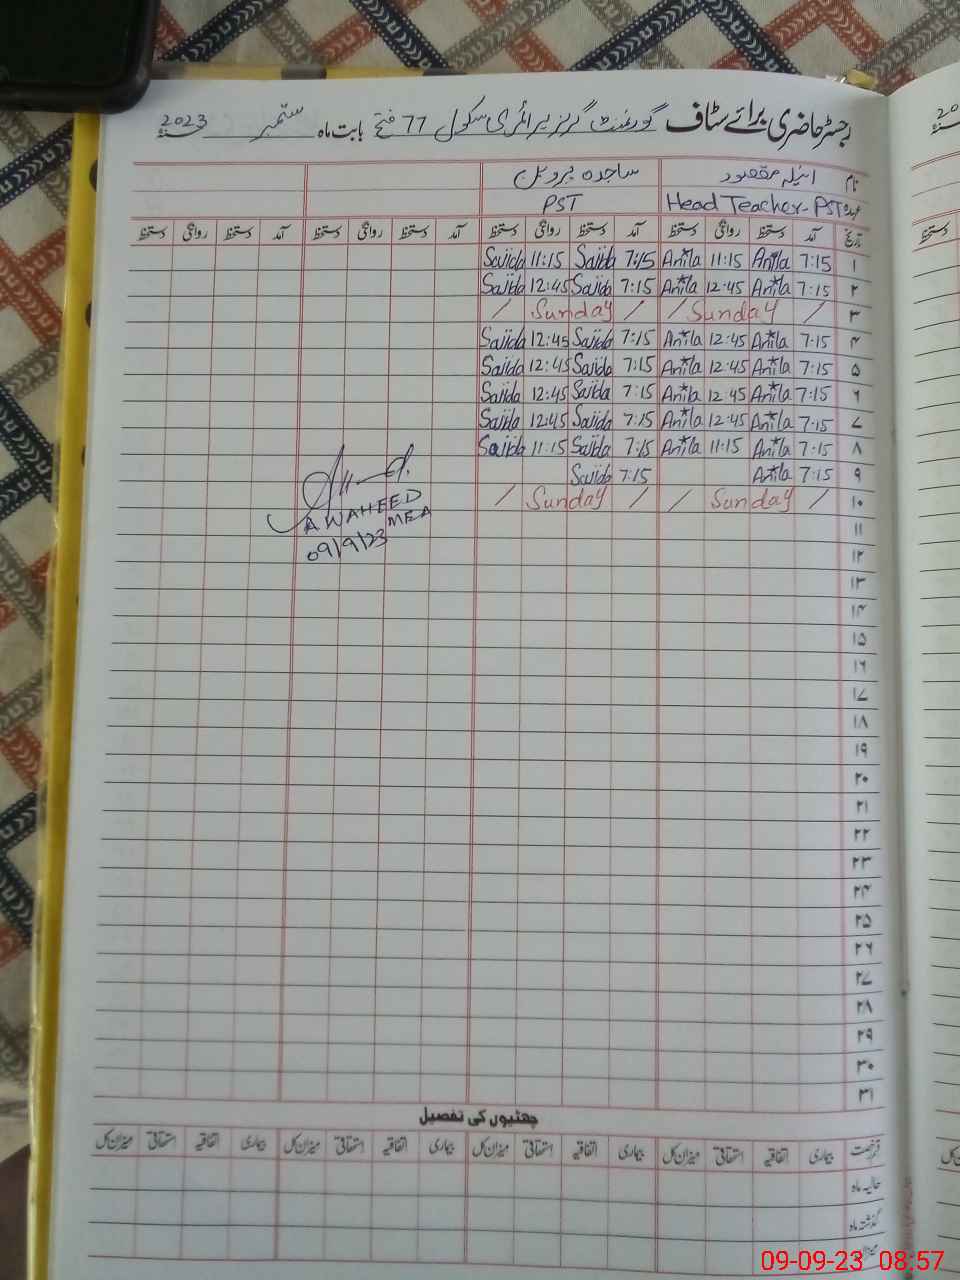 رجسٹر حاضری برائے سٹاف گورنمنٹ گرلز پرائمری سکول 77 فتح بابت ماہ ستمبر 2023
نام انیلہ مقصود ساجدہ پروین
عہدہ Head Teacher-PST PST
تاریخ آمد دستخط روانگی دستخط آمد دستخط روانگی دستخط آمد دستخط روانگی دستخط آمد دستخط روانگی دستخط
۱ 7:15 Anila 11:15 Anila 7:15 Sajida 11:15 Sajida
۲ 7:15 Anila 12:45 Anila 7:15 Sajida 12:45 Sajida
۳ / Sunday / / Sunday /
۴ 7:15 Anila 12:45 Anila 7:15 Sajida 12:45 Sajida
۵ 7:15 Anila 12:45 Anila 7:15 Sajida 12:45 Sajida
۶ 7:15 Anila 12:45 Anila 7:15 Sajida 12:45 Sajida
۷ 7:15 Anila 12:45 Anila 7:15 Sajida 12:45 Sajida
۸ 7:15 Anila 11:15 Anila 7:15 Sajida 11:15 Sajida
۹ 7:15 Anila 7:15 Sajida
۱۰ / Sunday / / Sunday /
A WAHEED
MEA
09/9/23
۱۱
۱۲
۱۳
۱۴
۱۵
۱۶
۱۷
۱۸
۱۹
۲۰
۲۱
۲۲
۲۳
۲۴
۲۵
۲۶
۲۷
۲۸
۲۹
۳۰
۳۱
چھٹیوں کی تفصیل
رخصت بیماری اتفاقیہ استحقاقی میزان کل بیماری اتفاقیہ استحقاقی میزان کل بیماری اتفاقیہ استحقاقی میزان کل بیماری اتفاقیہ استحقاقی میزان کل
حالیہ ماہ
گذشتہ ماہ
09-09-23 08:57